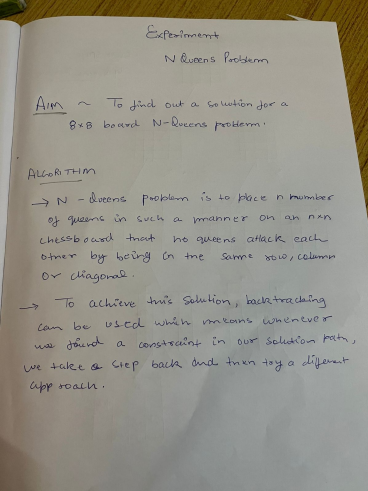 Experiment
N Queens Problem
AIM ~ To find out a solution for a
8x8 board N-Queens problem.
ALGORITHM
→ N - Queens problem is to place n number
of queens in such a manner on an nxn
chessboard that no queens attack each
other by being in the same row, column
or diagonal.
→ To achieve this solution, backtracking
can be used which means whenever
we found a constraint in our solution path,
we take a step back and then try a different
approach.